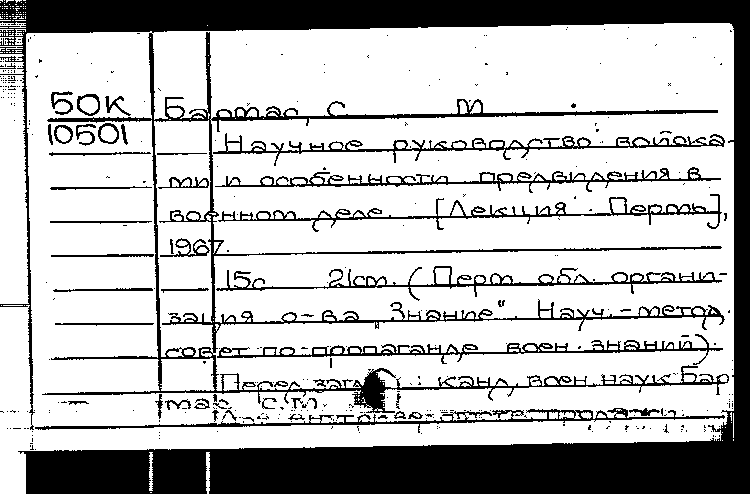 50К Бартас, С М
10501 Научное руководство войска-
ми и особенности предвидения в
военном деле. [Лекция. Пермь],
1967.
15с 21см. (Перм. обл. органи-
зация о-ва „Знание". Науч.-метод.
совет по пропаганде воен. знаний).
Перед загл. : канд. воен. наук Бар-
тас С.М.